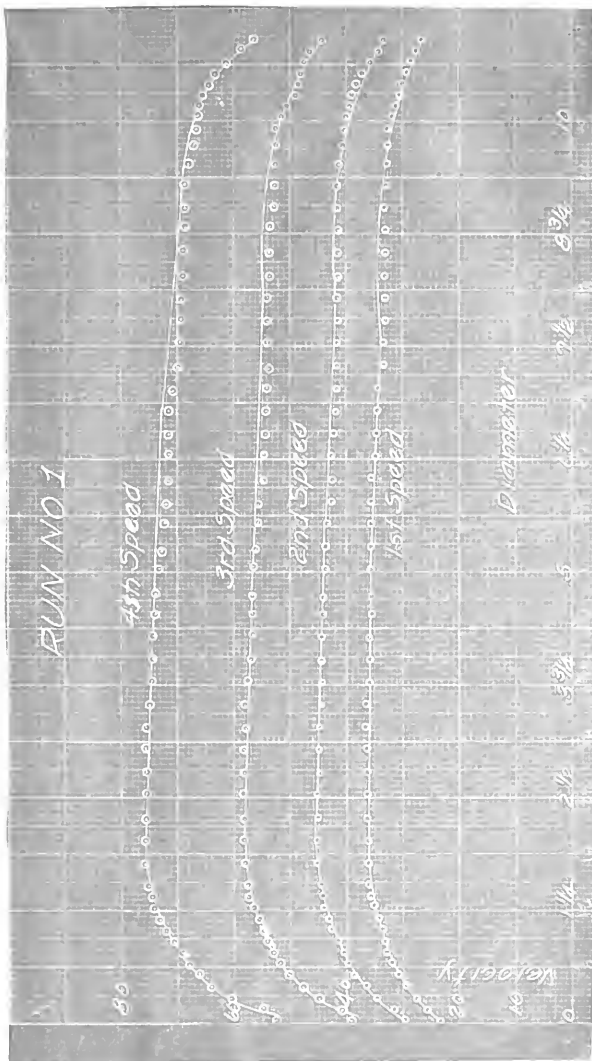 RUN NO 1
4th Speed
3rd Speed
2nd Speed
1st Speed
Velocity
80
60
40
20
10
0
1 1/4
2 1/2
3 3/4
5
6 1/4
7 1/2
8 3/4
10
Diameter